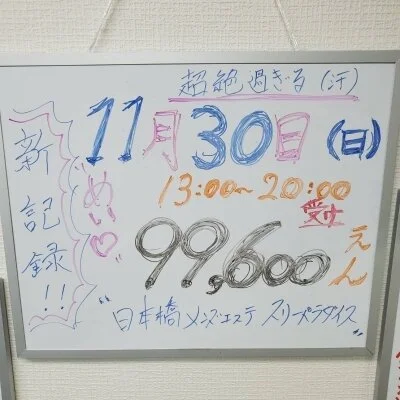 超絶過ぎる(汗)
11月30日(日)
新記録!!
めい♡
13:00~20:00
99,600えん
"日本橋メンズエステ スリーパラダイス"